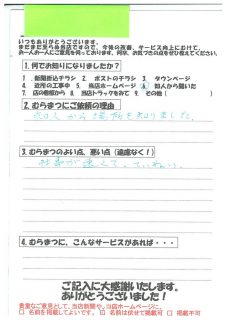 いつもありがとうございます。
まだまだ至らぬ当店ですので、今後の改善、サービス向上にむけて、
お一人お一人にご意見を伺っております。何卒、お気づきの点をぜひ教えてください。
1.何でお知りになりましたか？
1 新聞折込チラシ 2 ポストのチラシ 3 タウンページ
4 近所の工事中 5 当店ホームページ 6 知人から聞いた
7 店の看板から 8 当店トラックをみて 9 その他(
2.むらまつにご依頼の理由
知人から場所を知りました。
3.むらまつのよい点、悪い点(遠慮なく！)
仕事が速くて、ていねい。
4.むらまつに、こんなサービスがあれば・・・
ご記入に大感謝いたします。
ありがとうございました！
貴重なご意見として、当店新聞や、当店ホームページに、
□名前を掲載してよいです。 □名前は伏せて掲載可 □掲載不可